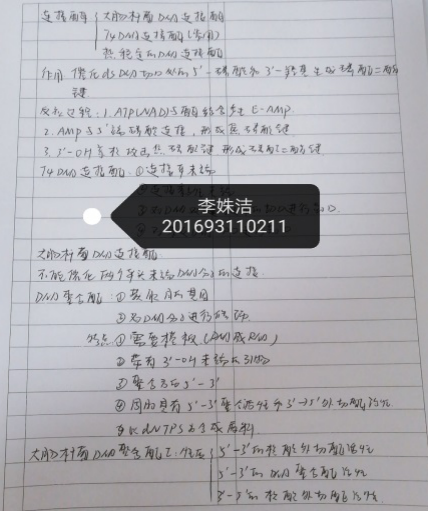 连接酶 大肠杆菌DNA连接酶
T4DNA连接酶(常用)
热稳定DNA连接酶
作用:催化dsDNA切口处的5'-磷酸和3'-羟基生成磷酸二酯
键
反应过程:1.ATP(NAD)与酶结合产生E-AMP
2.AMP与5'端磷酸连接,形成焦磷酸键
3.3'-OH亲核攻击焦磷酸键形成磷酸二酯键
T4DNA连接酶:①连接平末端
李姝洁
201693110211
大肠杆菌DNA连接酶
不能催化两个平末端DNA分子的连接.
DNA聚合酶:①获取目的基因
②对DNA分子进行
特点①需要模板(DNA或RNA)
②带有3'-OH末端的引物
③聚合方向5'-3'
④同时具有5'-3'聚合活性和3'→5'外切酶活性
dNTPs为合成原料
大肠杆菌DNA聚合酶I:活性 5'-3'的核酸外切酶活性
5'-3'的DNA聚合酶活性
3'-5'的核酸外切酶活性